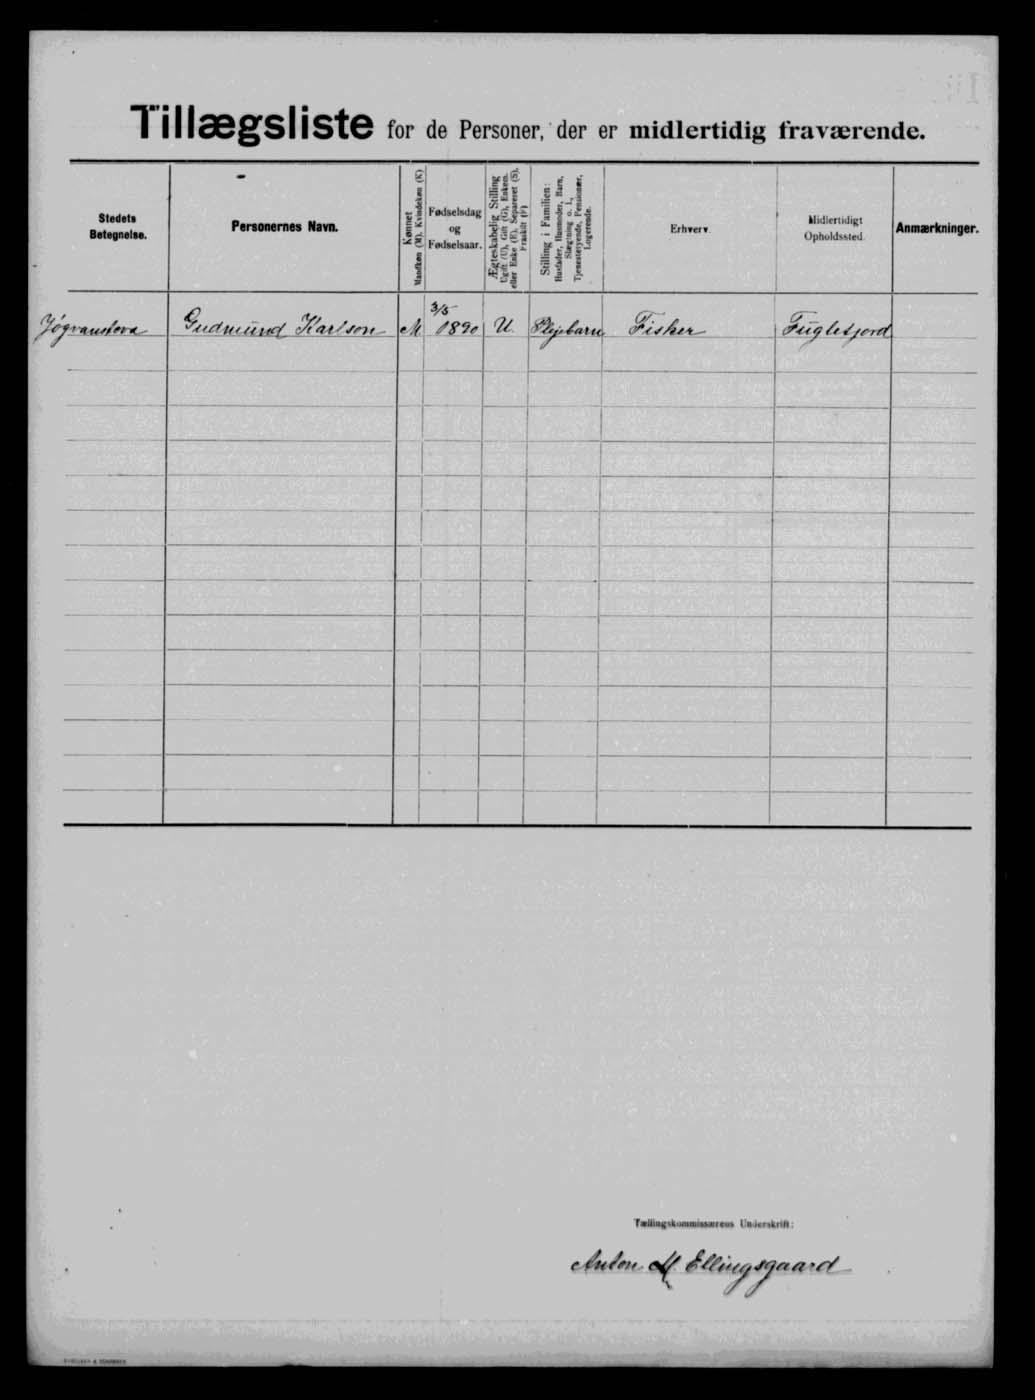 Tillægsliste for de Personer, der er midlertidig fraværende.
Stedets Betegnelse.
Personernes Navn.
Kønnet
Mandkøn (M). Kvindekøn (K)
Fødselsdag
og
Fødselsaar.
Ægteskabelig Stilling
Ugift (U), Gift (G), Enkem.
eller Enke (E), Separeret (S),
Fraskilt (F)
Stilling i Familien:
Husfader, Husmoder, Barn,
Slægtning o. l.,
Tjenestetyende, Pensionær,
Logerende.
Erhverv.
Midlertidigt
Opholdssted.
Anmærkninger.
3/5
Jógvanstova Gudmund Karlson M 1890 U. Plejebarn Fisker Fuglefjord
Tællingskommissærens Underskrift:
Anton M. Ellingsgaard